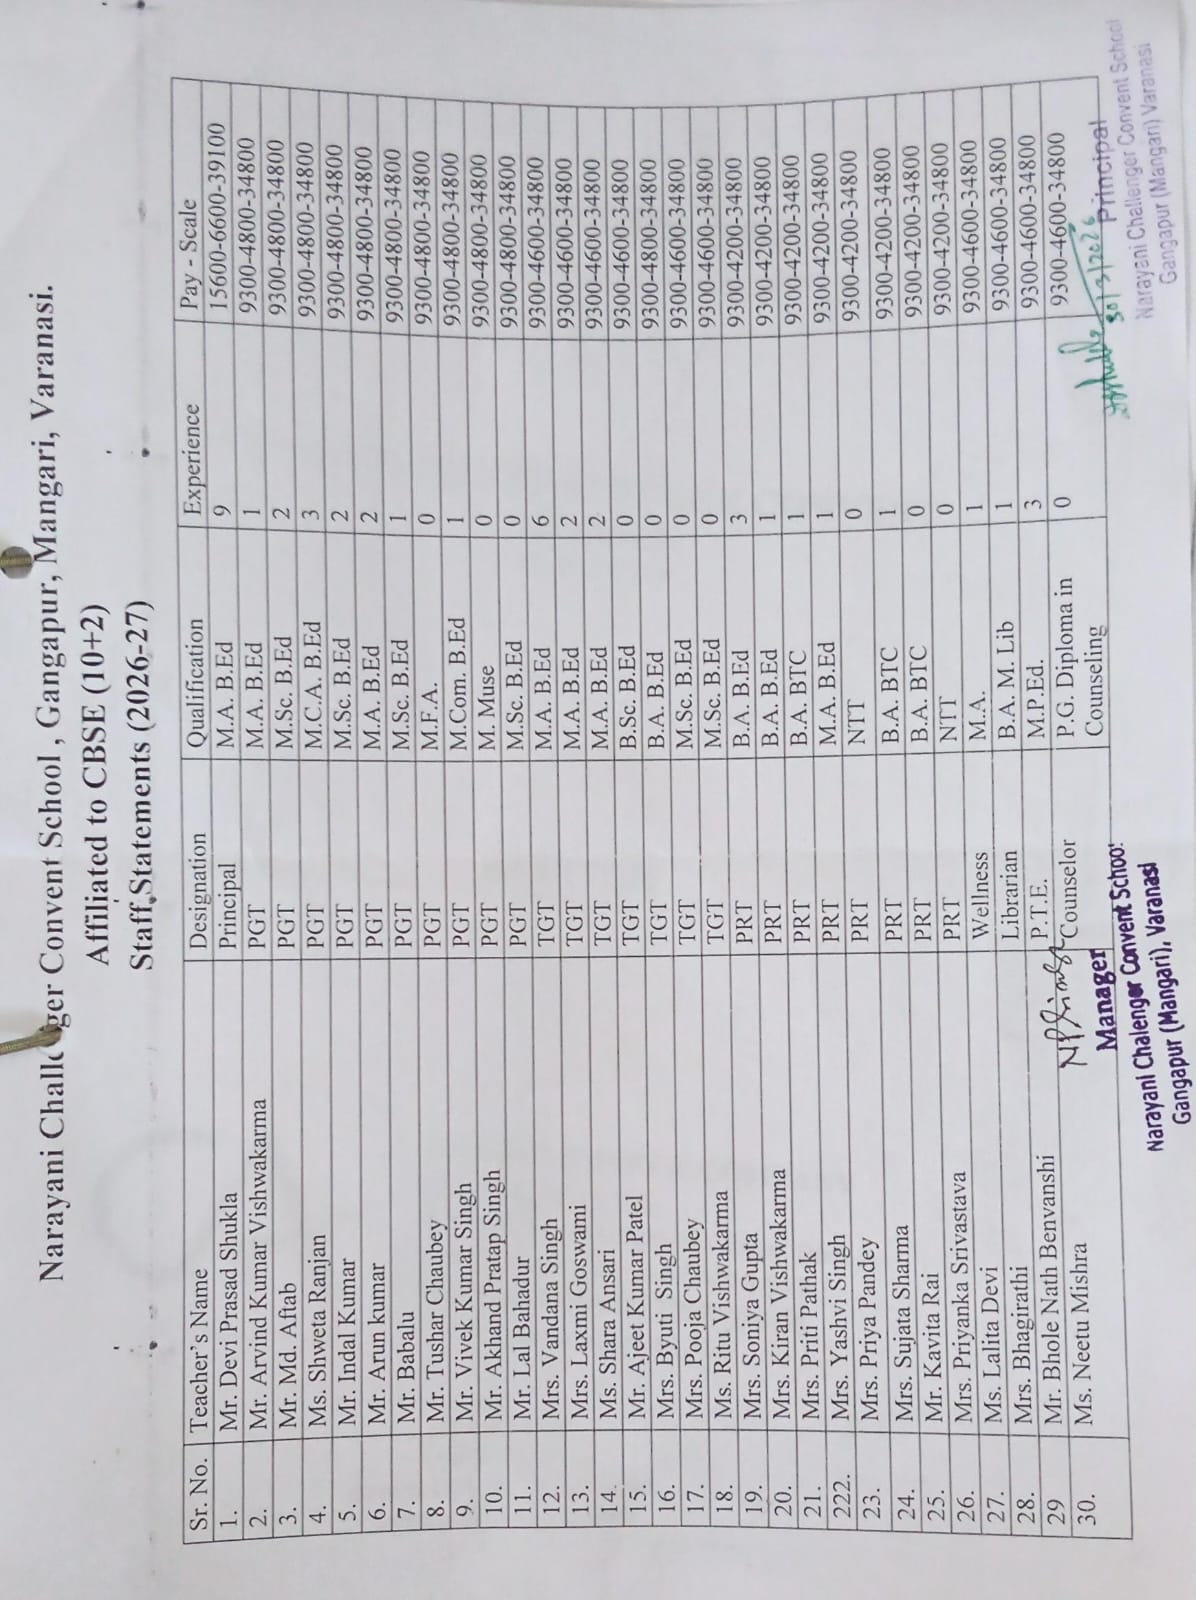 Narayani Challenger Convent School , Gangapur, Mangari, Varanasi.
Affiliated to CBSE (10+2)
Staff Statements (2026-27)
Sr. No. Teacher's Name Designation Qualification Experience Pay - Scale
1. Mr. Devi Prasad Shukla Principal M.A. B.Ed 9 15600-6600-39100
2. Mr. Arvind Kumar Vishwakarma PGT M.A. B.Ed 1 9300-4800-34800
3. Mr. Md. Aftab PGT M.Sc. B.Ed 2 9300-4800-34800
4. Ms. Shweta Ranjan PGT M.C.A. B.Ed 3 9300-4800-34800
5. Mr. Indal Kumar PGT M.Sc. B.Ed 2 9300-4800-34800
6. Mr. Arun kumar PGT M.A. B.Ed 2 9300-4800-34800
7. Mr. Babalu PGT M.Sc. B.Ed 1 9300-4800-34800
8. Mr. Tushar Chaubey PGT M.F.A. 0 9300-4800-34800
9. Mr. Vivek Kumar Singh PGT M.Com. B.Ed 1 9300-4800-34800
10. Mr. Akhand Pratap Singh PGT M. Muse 0 9300-4800-34800
11. Mr. Lal Bahadur PGT M.Sc. B.Ed 0 9300-4800-34800
12. Mrs. Vandana Singh TGT M.A. B.Ed 6 9300-4600-34800
13. Mrs. Laxmi Goswami TGT M.A. B.Ed 2 9300-4600-34800
14. Ms. Shara Ansari TGT M.A. B.Ed 2 9300-4600-34800
15. Mr. Ajeet Kumar Patel TGT B.Sc. B.Ed 0 9300-4600-34800
16. Mrs. Byuti Singh TGT B.A. B.Ed 0 9300-4800-34800
17. Mrs. Pooja Chaubey TGT M.Sc. B.Ed 0 9300-4600-34800
18. Ms. Ritu Vishwakarma TGT M.Sc. B.Ed 0 9300-4600-34800
19. Mrs. Soniya Gupta PRT B.A. B.Ed 3 9300-4200-34800
20. Mrs. Kiran Vishwakarma PRT B.A. B.Ed 1 9300-4200-34800
21. Mrs. Priti Pathak PRT B.A. BTC 1 9300-4200-34800
222. Mrs. Yashvi Singh PRT M.A. B.Ed 1 9300-4200-34800
23. Mrs. Priya Pandey PRT NTT 0 9300-4200-34800
24. Mrs. Sujata Sharma PRT B.A. BTC 1 9300-4200-34800
25. Mr. Kavita Rai PRT B.A. BTC 0 9300-4200-34800
26. Mrs. Priyanka Srivastava PRT NTT 0 9300-4200-34800
27. Ms. Lalita Devi Wellness M.A. 1 9300-4600-34800
28. Mrs. Bhagirathi Librarian B.A. M. Lib 1 9300-4600-34800
29 Mr. Bhole Nath Benvanshi P.T.E. M.P.Ed. 3 9300-4600-34800
30. Ms. Neetu Mishra Counselor P.G. Diploma in Counseling 0 9300-4600-34800
Manager
Narayani Chalenger Convent School
Gangapur (Mangari), Varanasi
30/3/2026
Principal
Narayani Challenger Convent School
Gangapur (Mangari) Varanasi